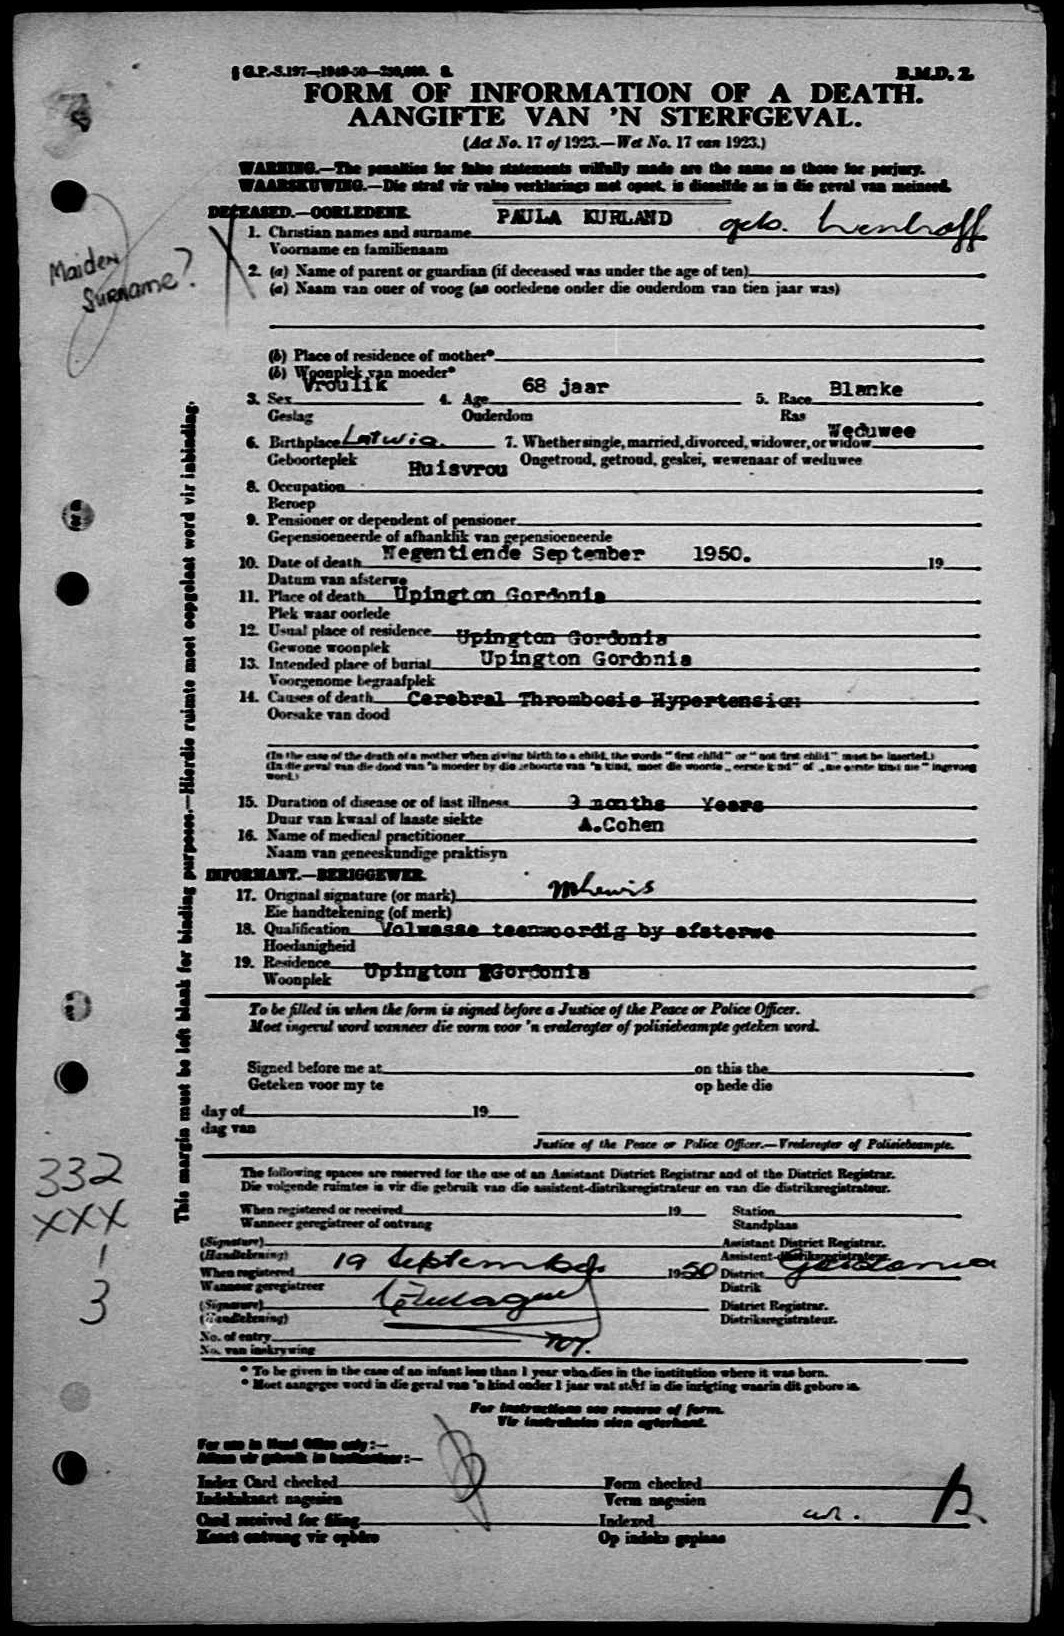 G.P.-S.197—1949-50—250,000. S.
B.M.D. 2.
FORM OF INFORMATION OF A DEATH.
AANGIFTE VAN 'N STERFGEVAL.
(Act No. 17 of 1923.—Wet No. 17 van 1923.)
WARNING.—The penalties for false statements wilfully made are the same as those for perjury.
WAARSKUWING.—Die straf vir valse verklarings met opset, is dieselfde as in die geval van meineed.
DECEASED.—OORLEDENE.
PAULA KURLAND geb.
1. Christian names and surname
Voorname en familienaam
Maiden
Surname?
2. (a) Name of parent or guardian (if deceased was under the age of ten)
(a) Naam van ouer of voog (as oorledene onder die ouderdom van tien jaar was)
(b) Place of residence of mother*
(b) Woonplek van moeder*
Vroulik 68 jaar Blanke
3. Sex 4. Age 5. Race
Geslag Ouderdom Ras
Weduwee
6. Birthplace Latwia. 7. Whether single, married, divorced, widower, or widow
Geboorteplek Ongetroud, getroud, geskei, wewenaar of weduwee
Huisvrou
8. Occupation
Beroep
9. Pensioner or dependent of pensioner
Gepensioeneerde of afhanklik van gepensioeneerde
Negentiende September 1950.
10. Date of death 19
Datum van afsterwe
11. Place of death Upington Gordonia
Plek waar oorlede
12. Usual place of residence Upington Gordonia
Gewone woonplek
13. Intended place of burial Upington Gordonia
Voorgenome begraafplek
14. Causes of death Cerebral Thrombosis Hypertension
Oorsake van dood
(In the case of the death of a mother when giving birth to a child, the words "first child" or "not first child" must be inserted.)
(In die geval van die dood van 'n moeder by die geboorte van 'n kind, moet die woorde „eerste kind" of „nie eerste kind nie" ingevoeg
word.)
15. Duration of disease or of last illness months Years
Duur van kwaal of laaste siekte
A.Cohen
16. Name of medical practitioner
Naam van geneeskundige praktisyn
INFORMANT.—BERIGGEWER.
17. Original signature (or mark) MLewis
Eie handtekening (of merk)
18. Qualification Volwasse teenwoordig by afsterwe
Hoedanigheid
19. Residence Upington Gordonia
Woonplek
To be filled in when the form is signed before a Justice of the Peace or Police Officer.
Moet ingevul word wanneer die vorm voor 'n vrederegter of polisiebeampte geteken word.
Signed before me at on this the
Geteken voor my te op hede die
day of 19
dag van
Justice of the Peace or Police Officer.—Vrederegter of Polisiebeampte.
This margin must be left blank for binding purposes.—Hierdie ruimte moet oopgelaat word vir inbinding.
332
XXX
1
3
The following spaces are reserved for the use of an Assistant District Registrar and of the District Registrar.
Die volgende ruimtes is vir die gebruik van die assistent-distriksregistrateur en van die distriksregistrateur.
When registered or received 19 Station
Wanneer geregistreer of ontvang Standplaas
(Signature) Assistant District Registrar.
(Handtekening) Assistent-distriksregistrateur.
When registered 19 September 1950 District Gordonia
Wanneer geregistreer Distrik
(Signature) District Registrar.
(Handtekening) Distriksregistrateur.
No. of entry
No. van inskrywing
* To be given in the case of an infant less than 1 year who dies in the institution where it was born.
* Moet aangegee word in die geval van 'n kind onder 1 jaar wat sterf in die inrigting waarin dit gebore is.
For instructions see reverse of form.
Vir instruksies sien agterkant.
For use in Head Office only:—
Alleen vir gebruik in hoofkantoor:—
Index Card checked Form checked
Indekskaart nagesien Vorm nagesien
Card received for filing Indexed
Kaart ontvang vir opbêre Op indeks geplaas